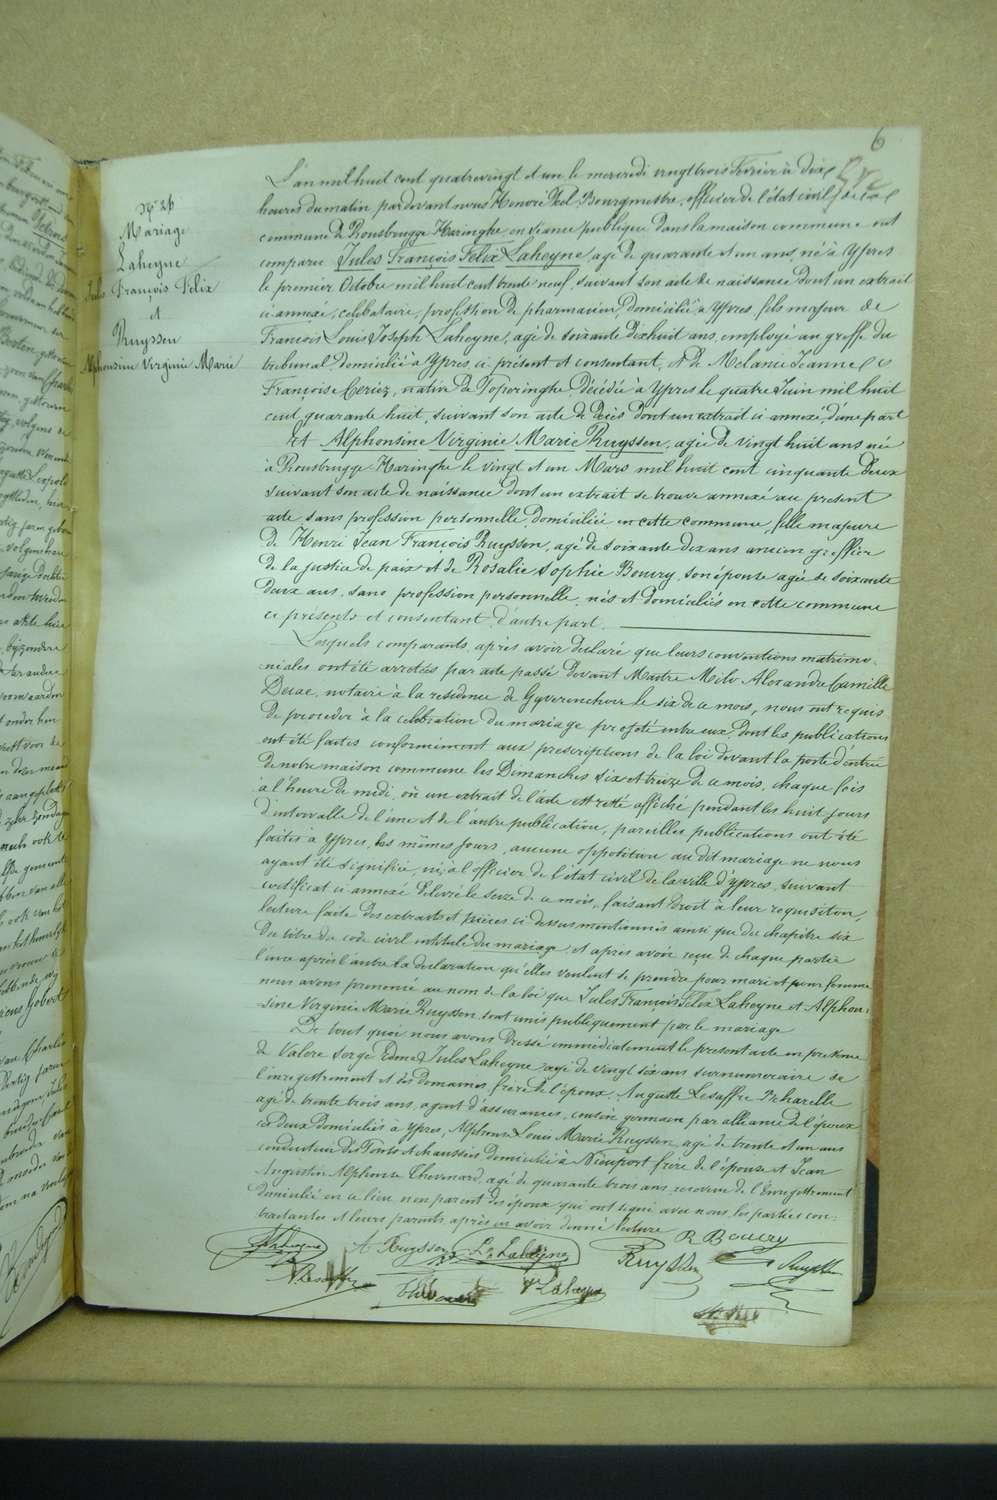 6
Mariage
Laheyne
Jules François Félix
et
Ruyssen
Alphonsine Virginie Marie
L'an mil huit cent quatrevingt et un le mercredi vingt trois Février à dix
heures du matin pardevant nous Honoré Bourgmestre, officier de l'état civil de la
commune de Rousbrugge Haringhe, en séance publique dans la maison commune ont
comparu Jules François Félix Laheyne, agé de quarante et un ans, né à Ypres
le premier Octobre mil huit cent trente neuf, suivant son acte de naissance dont un extrait
ci annexé, célibataire, profession de pharmacien, domicilié à Ypres, fils majeur de
François Louis Joseph Laheyne, agé de soixante dixhuit ans, employé au greffe du
tribunal, domicilié à Ypres, ci présent et consentant, et de Mélanie Jeanne
Françoise Ceriez, native de Poperinghe, décédée à Ypres le quatre Juin mil huit
cent quarante huit, suivant son acte de décès dont un extrait ci annexé, d'une part
Et Alphonsine Virginie Marie Ruyssen, agée de vingt huit ans née
à Rousbrugge Haringhe le vingt et un Mars mil huit cent cinquante deux
suivant son acte de naissance dont un extrait se trouve annexé au présent
acte, sans profession personnelle, domiciliée en cette commune, fille majeure
de Henri Jean François Ruyssen, agé de soixante dix ans ancien greffier
de la justice de paix et de Rosalie Sophie Boucry, son épouse agée de soixante
deux ans, sans profession personnelle, nés et domiciliés en cette commune
ci présents et consentant, d'autre part.
Lesquels comparants, après avoir déclaré que leurs conventions matrimo-
niales ont été arretées par acte passé devant Maitre Alexandre Camille
notaire à la résidence de Gyverinchove le six de ce mois, nous ont requis
de procéder à la célébration du mariage projeté entre eux, dont les publications
ont été faites conformément aux prescriptions de la loi devant la porte d'entrée
de notre maison commune les Dimanches six et treize de ce mois, chaque fois
à l'heure de midi, où un extrait de l'acte est resté affiché pendant les huit jours
d'intervalle de l'une et de l'autre publication, pareilles publications ont été
faites à Ypres, les mêmes jours, aucune opposition au dit mariage ne nous
ayant été signifiée, ni à l'officier de l'état civil de la ville d'Ypres, suivant
certificat ci annexé délivré le seize de ce mois, faisant droit à leur requisition,
lecture faite des extraits et pièces ci dessus mentionnés ainsi que du chapitre six
du titre du code civil intitulé du mariage et après avoir reçu de chaque partie
l'une après l'autre la déclaration qu'elles veulent se prendre pour mari et pour femme
nous avons prononcé au nom de la loi que Jules François Félix Laheyne et Alphon-
sine Virginie Marie Ruyssen sont unis publiquement par le mariage
De tout quoi nous avons dressé immédiatement le present acte en présence
de Valere Serge Edmé Jules Laheyne agé de vingt six ans surnuméraire de
l'enregistrement et des domaines frère de l'époux, Auguste Lesaffre
agé de trente trois ans, agent d'assurances, cousin germain par alliance de l'époux
ces deux domiciliés à Ypres, Alphonse Louis Marie Ruyssen agé de trente et un ans
conducteur des Ponts et chaussées domicilié à Nieuport frère de l'épouse et Jean
Augustin Alphonse Thevenard, agé de quarante trois ans, receveur de l'Enregistrement
domicilié en ce lieu, non parent des époux qui ont signé avec nous, les parties con-
tractantes et leurs parents après en avoir donné lecture
A Ruyssen
R Boucry
Ruyssen
Ruyssen
Thevenard
V Laheyne